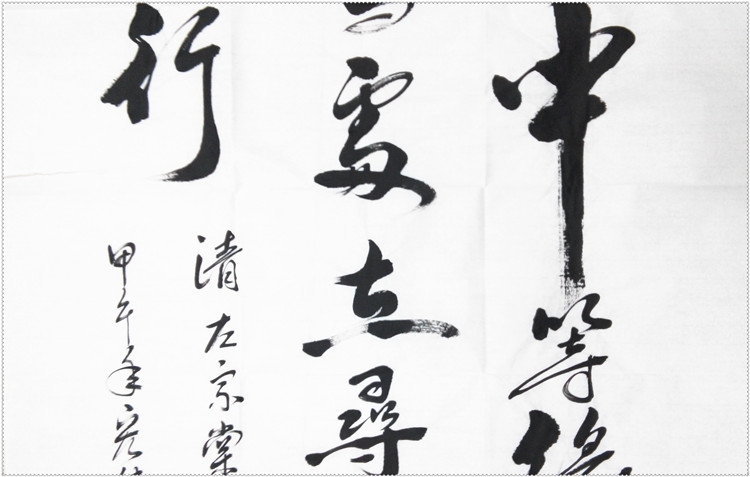 中等
處立尋
行
清左宗棠
甲午年